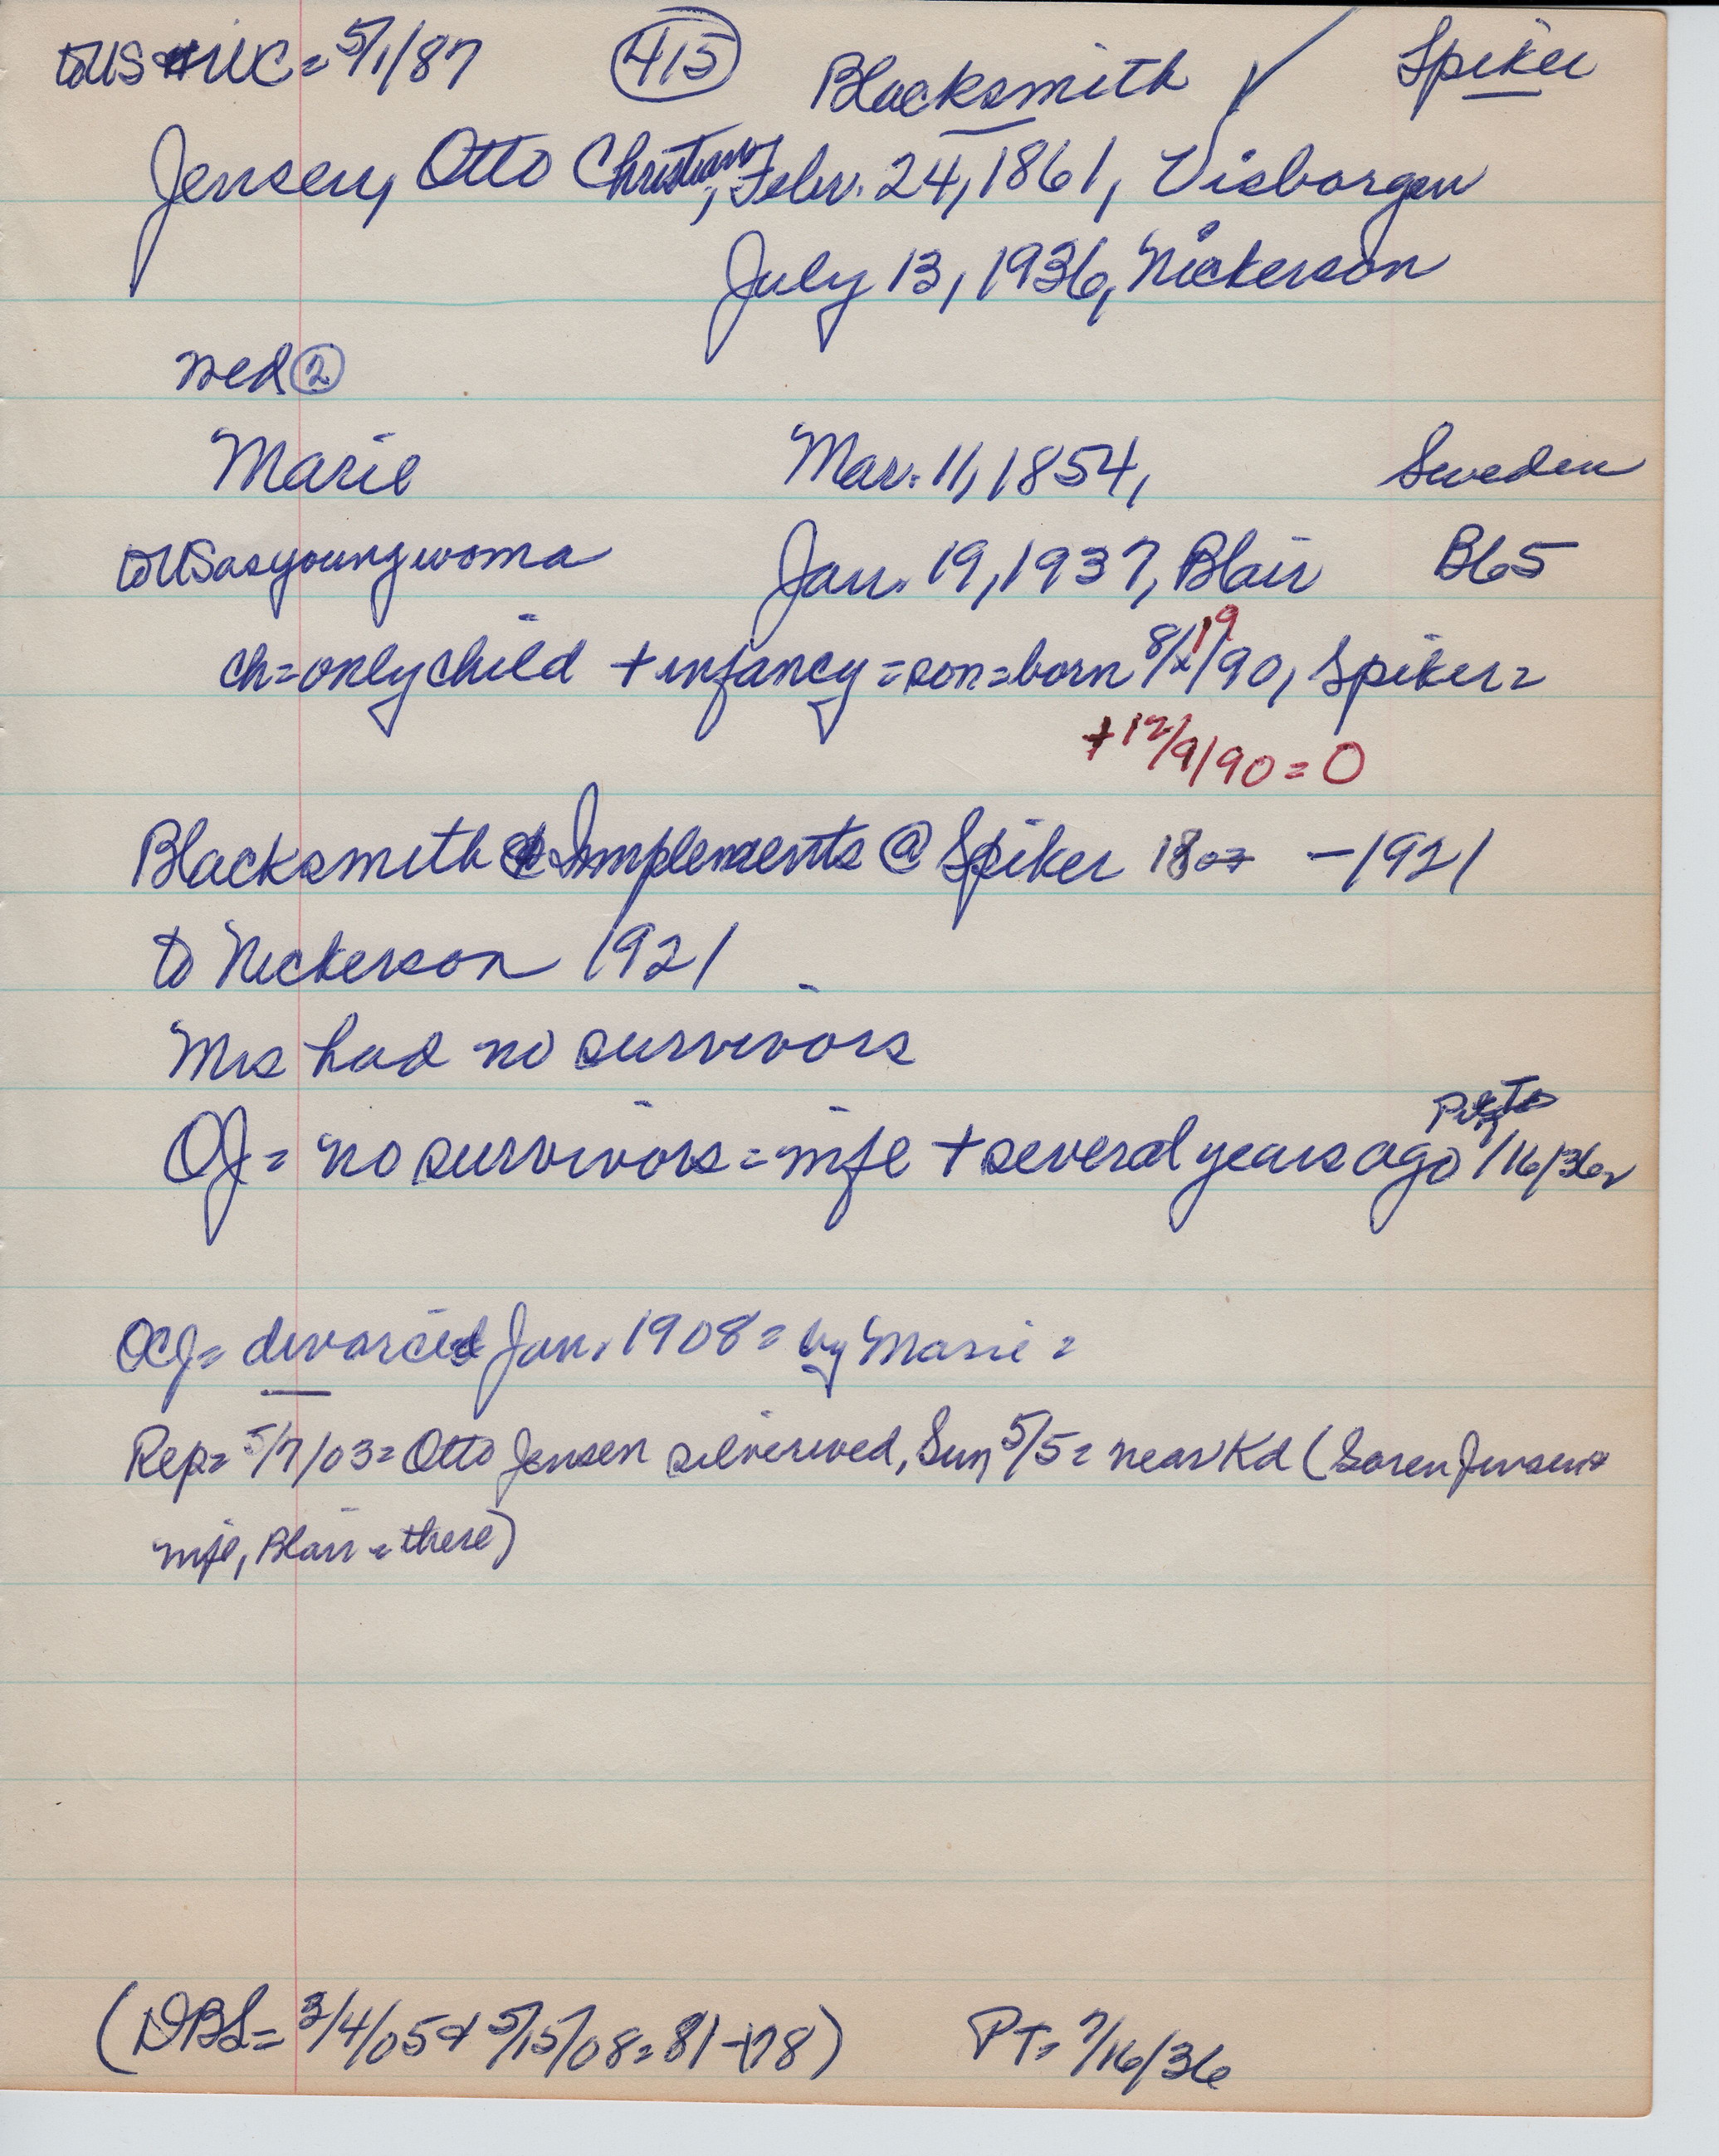 to US & WC = 5/1/87 415 Blacksmith ✓ Spiker
Jensen, Otto Christian, Febr. 24, 1861, Visborgen
July 13, 1936, Nickerson
wed ②
Marie Mar. 11, 1854, Sweden
to US as young woma Jan. 19, 1937, Blair B65
ch = only child + infancy = son = born 8/19/90, Spiker =
+ 12/9/90 = 0
Blacksmith & Implements @ Spiker 18 - 1921
to Nickerson 1921
Mrs had no survivors
OJ = no survivors = wife + several years ago 7/16/36
OCJ = divorced Jan. 1908 = by Marie =
Rep = 5/7/03 = Otto Jensen silverwed, Sun 5/5 = near Kd (Soren Jensen +
wife, Blair = there)
(DBL = 3/4/05 & 5/15/08 = 81 + 78) PT = 7/16/36